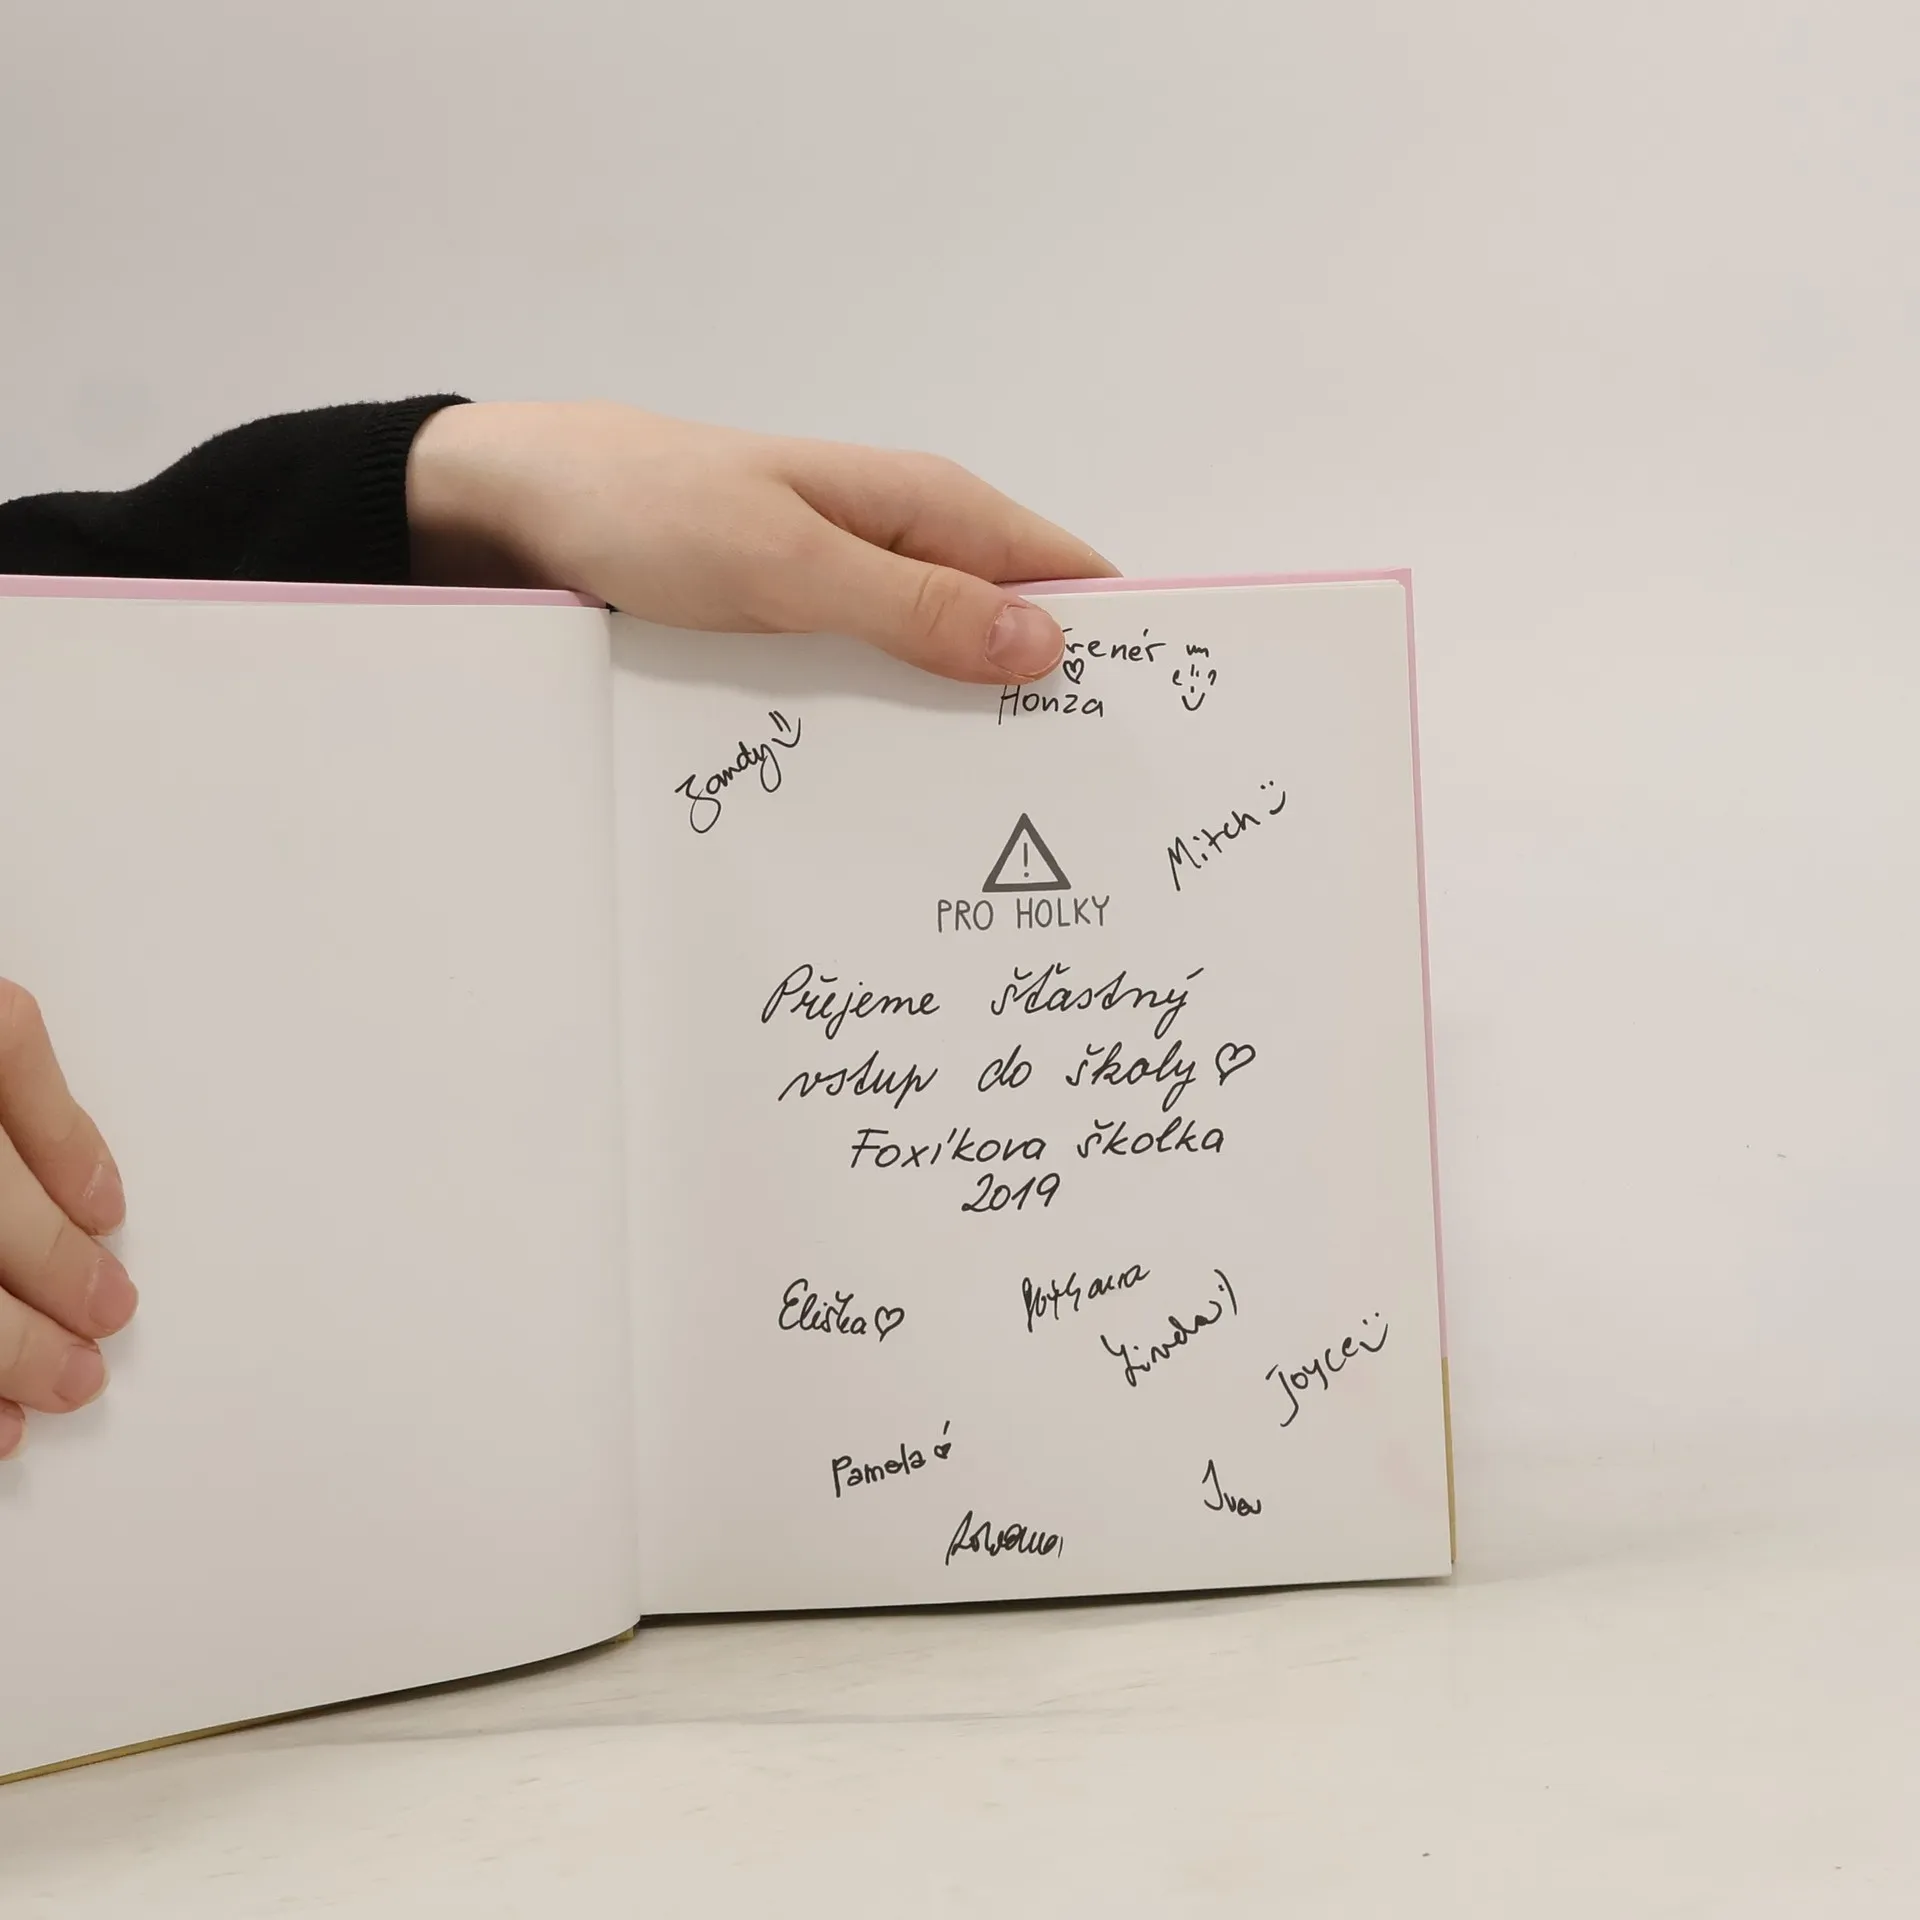 Honza
Mitch
PRO HOLKY
Přejeme šťastný
vstup do školy
Foxíkova školka
2019
Eliška
Linda :)
Joyce
Pamela
Iva